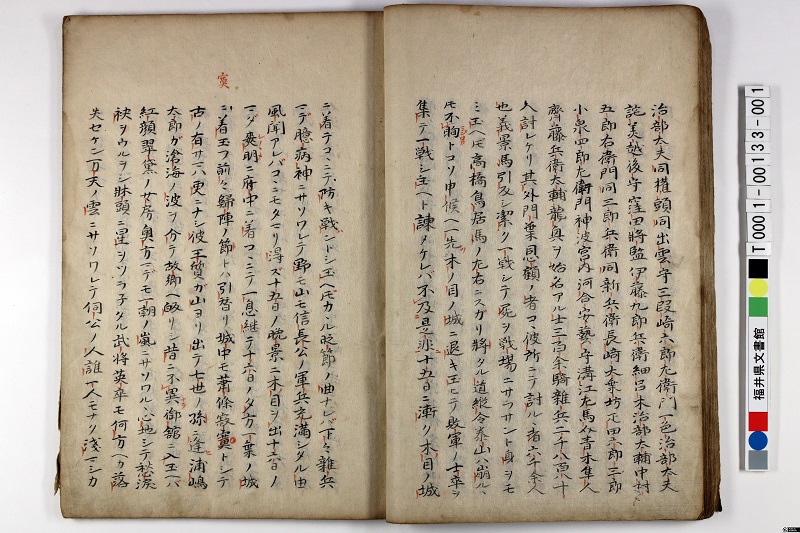 治部太夫同権頭同出雲守三段崎六郎左衛門一色治部太夫
詫美越後守窪田将監伊藤九郎兵衛細呂木治部太輔中村
五郎右衛門同三郎兵衛同新兵衛長崎大乗坊疋田六郎三郎
小泉四郎左衛門神波宮内河合安藝守溝江左馬介青木隼人
齊藤兵衛太輔龍奥ヲ始名アル士三百余騎雑兵二千八百八十
人討レケリ其外門葉恩顧ノ者コヽ彼所ニテ討ルヽ者六千余人
也義景馬引反シ潔ク一戦シテ死ヲ戦場ニサラサント身ヲモ
ミ玉ヘ𪜈高橋鳥居馬ノ左右ニスガリ将タル道縦令泰山ハ崩ルヽ
𪜈不胸トコソ申候ヘ一先木ノ目ノ城ニ退キ玉ヒテ敗軍ノ士卒ヲ
集テ一戦シ玉ヘト諫メケレバ不及是非十五日ニ漸ク木目ノ城
ニ着テコヽニテ防キ戦ントシ玉ヘ𪜈カヽル時節ノ曲ナレバ下々雑兵
ニテ臆病神ニサソワレテ野モ山モ信長公ノ軍兵充満シタル由
風聞アレバコヽニモタマリ得ズ十五日ノ晩景ニ木目ヲ出十六日ノ
マダ爽明ニ府中ニ着コヽニテ一息継テ十六日ノ夕方一葉ノ城
ニ着玉フ前々歸陣ノ節トハ引替リ城中モ蕭條寂寞トシテ
古ノ有サ
ニナシ彼王質ガ山ヨリ出テ七世ノ孫ニ逢浦嶋
太郎ガ滄海ノ波ヲ分テ故郷ヘ皈リシ昔ニ不異御館ニ入玉ハ
紅顔翠黛ノ女房奥方ニテモ一朝ノ嵐ニサソワルヽ心地シテ愁涙
袂ヲウルヲシ牀頭ニ星ヲツラ子タル武将英卒モ何方ヘカ落
失セケン一万天ノ雲ニサソワレテ伺公ノ人誰一人モナク浅マシカ
寞
T0001-00133-001
福井県文書館